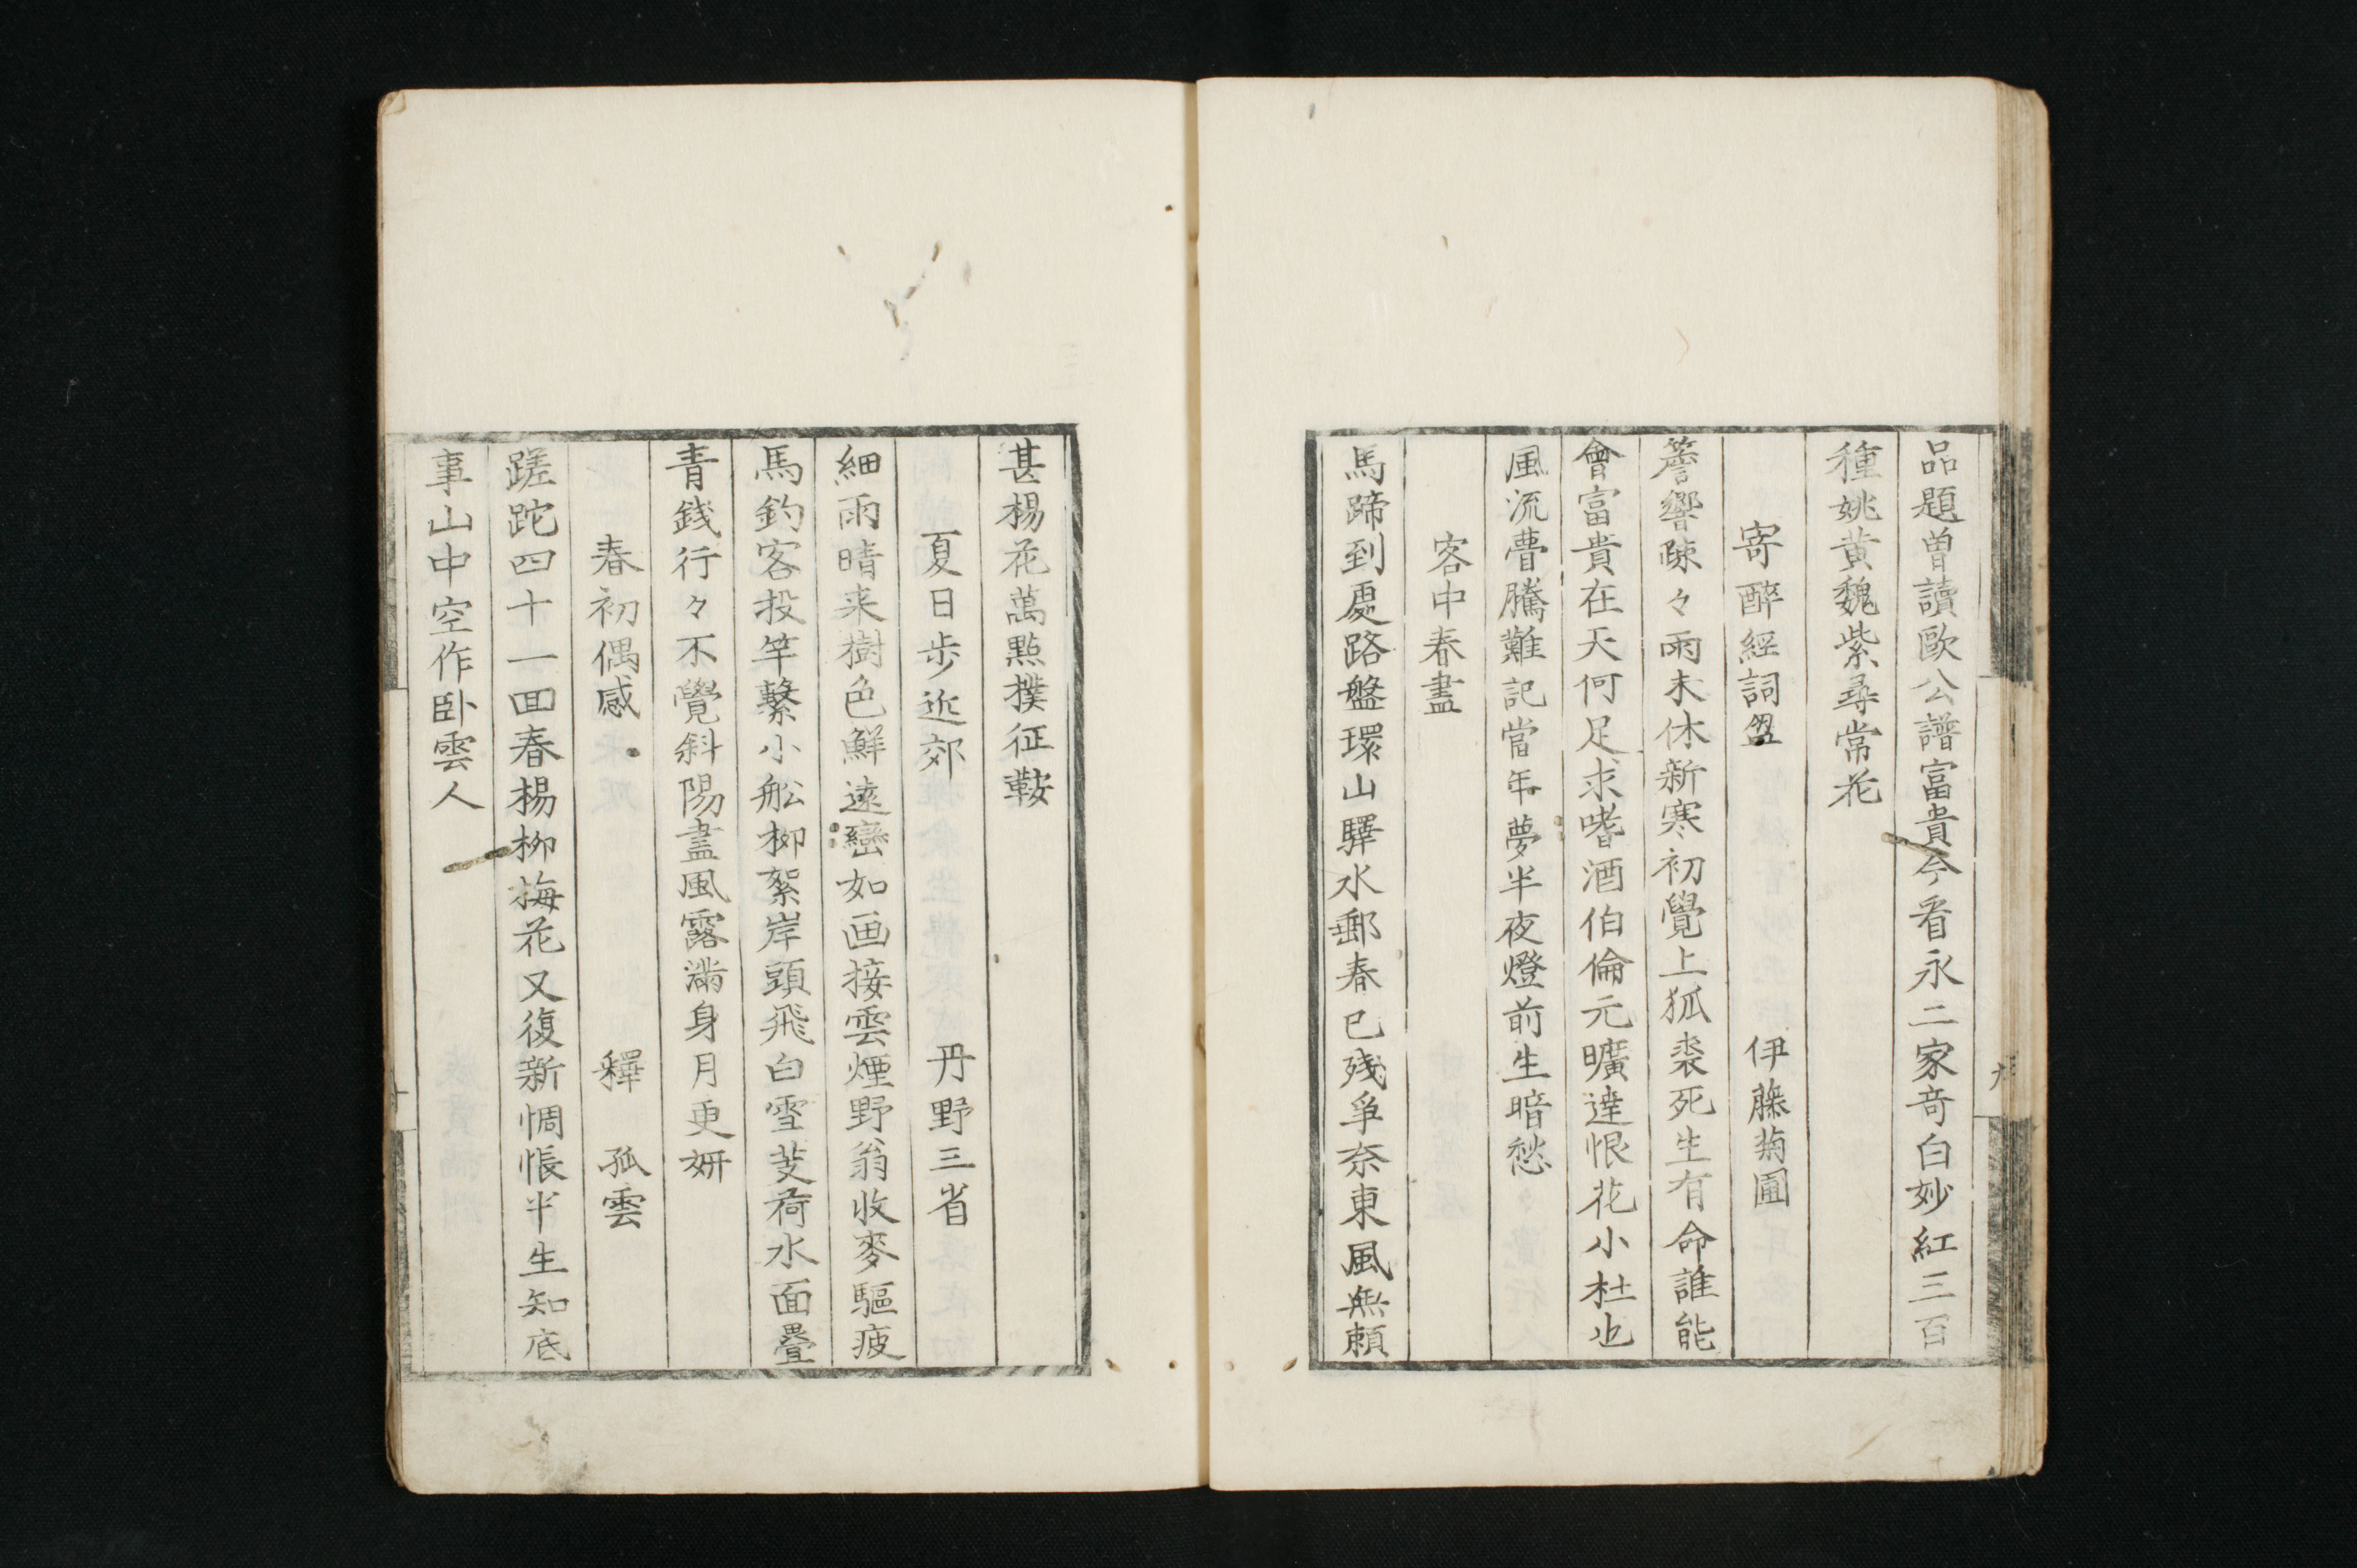 品題曽讀歐公譜富貴今看永二家竒白妙紅三百
種姚黄魏紫尋常花
寄醉經詞盟　伊藤菊圃
簷響踈々雨未休新寒初覺上狐裘死生有命誰能
會富貴在天何足求嗜酒伯倫元曠達恨花小杜也
風流瞢騰難記當年夢半夜燈前生暗愁
客中春盡
馬蹄到處路盤環山驛水郵春已残爭奈東風無頼
甚楊花萬點撲征鞍
夏日步近郊　丹野三省
細雨晴来樹色鮮遠巒如画接雲煙野翁收麥驅疲
馬釣客投竿繫小舩柳絮岸頭飛白雪芰荷水面疊
青錢行々不覺斜陽盡風露滿身月更妍
春初偶感　釋　孤雲
蹉跎四十一回春楊柳梅花又復新惆悵半生知底
事山中空作卧雲人
九
十